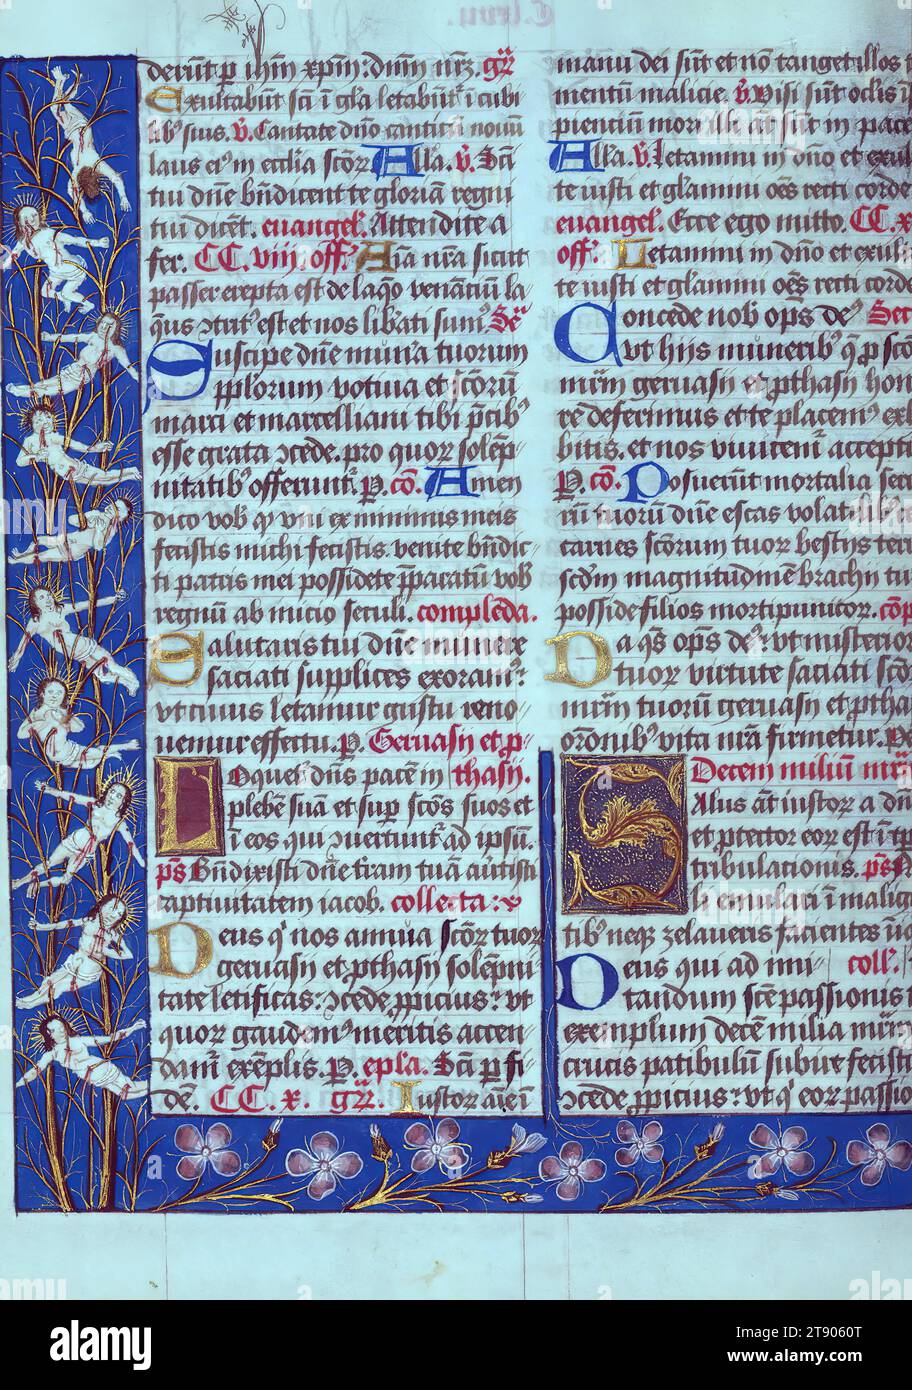 derūt p ihm xpm: dnm nrz. gr
Exultabūt sci ī gla letabūtr ī cubi
libꝰ suis. v. Cantate dno canticū nouū
laus eiꝰ in ecclia scōrꝝ Alla. v. Sci
tui dne bndicent te gloriam regni
tui dicēt. euangel. Attendite a
fer. CC. viij. off. Aīa nra sicut
passer erepta est de laqo venātiū la
queꝰ ɔtritꝰ est et nos libati sumꝰ. Se
Suscipe dne mun̄a tuorum
pplorum votiua et scōrū
marci et marcelliani tibi pcibꝰ
esse grata ɔcede. pro quoꝝ solēp
nitatibꝰ offerunt. P. cō. Amen
dico vob qd vni ex minimus meis
fecistis michi fecistis. venite bndic
ti patris mei possidete ppatū vob
regnū ab inicio seculi. complēda.
Salutaris tui dne munere
saciati supplices exoramꝰ:
vt cuius letamur gustu reno
uemur effectu. P. Geruasij et p
Loquet dns pacem in thasij.
plebē suā et sup scōs suos et
ī eos qui ɔuertuntr ad ipsum.
ps Bndixisti dne trām tuā auertisti
captiuitatem iacob. collecta: x
Deus qi nos annua scōrꝝ tuoꝝ
geruasij et pthasij solēpni
tate letificas: ɔcede ppicius: vt
quoꝝ gaudemꝰ meritis accen
damr exēplis. P. epla. Sci p fi
dē. CC. x. gr. Iustoꝝ aīe ī
manu dei sūt et nō tanget illos t
mentū malicie. v. Visi sūt oclis ī
pientiū mori illi aūt sūt in pace
Alla. v. Letamini in dno et exul
te iusti et glamini oēs recti corde
euangel. Ecce ego mitto. CC. x
off. Letamini in dno et exulta
te iusti et glamini oēs recti corde
Concede nob ops deꝰ Sec
vt hijs muneribꝰ q p scō
mrm geruasij et pthasij hon
re deferimus et te placemꝰ exl
bitis. et nos viuicemr accepti
P. cō. Posuerūt mortalia seru
rū tuorū dne escas volatilibꝰ c
carnes scōrum tuoꝝ bestijs terr
scdm magnitudinē brachii tu
posside filios mortipunitoꝝ. cōp
Da qs ops deꝰ vt misterioꝝ
tuoꝝ virtute saciati scō
mrm tuorū geruasij et ptha
orōnibꝰ vita nra firmetur. Pe
Decem milium mr
Salus aūt iustoꝝ a dn
et ptector eoꝝ est ī tp
tribulacionis. ps N
li emulari ī malig
tibꝰ neqꝫ zelaueris facientes in
Deus qui ad imi coll.
tandum scē passionis
exemplum decē milia mrm
crucis patibulū subire fecisti
ɔcede ppicius: vt qi eoꝝ passio
alamy
Image ID: 2T9060T
www.alamy.com